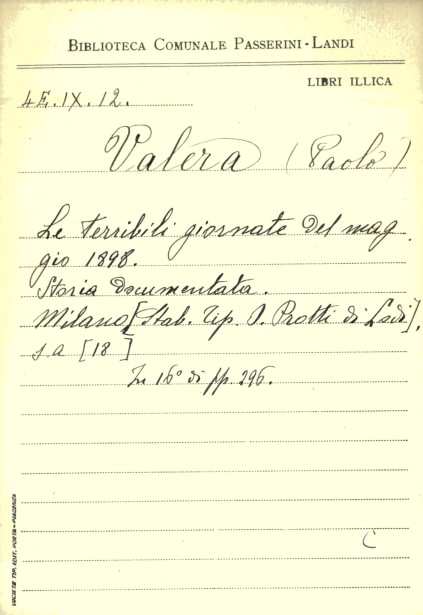 BIBLIOTECA COMUNALE PASSERINI-LANDI
LIBRI ILLICA
4E.IX.12.
Valera (Paolo)
Le terribili giornate del mag
gio 1898.
Storia Documentata.
Milano [Stab. Tip. O. Protti di Lodi],
s a [18 ]
In 16° di pp. 296.
C
SOCIETÀ TIP. EDIT. PORTA-PIACENZA